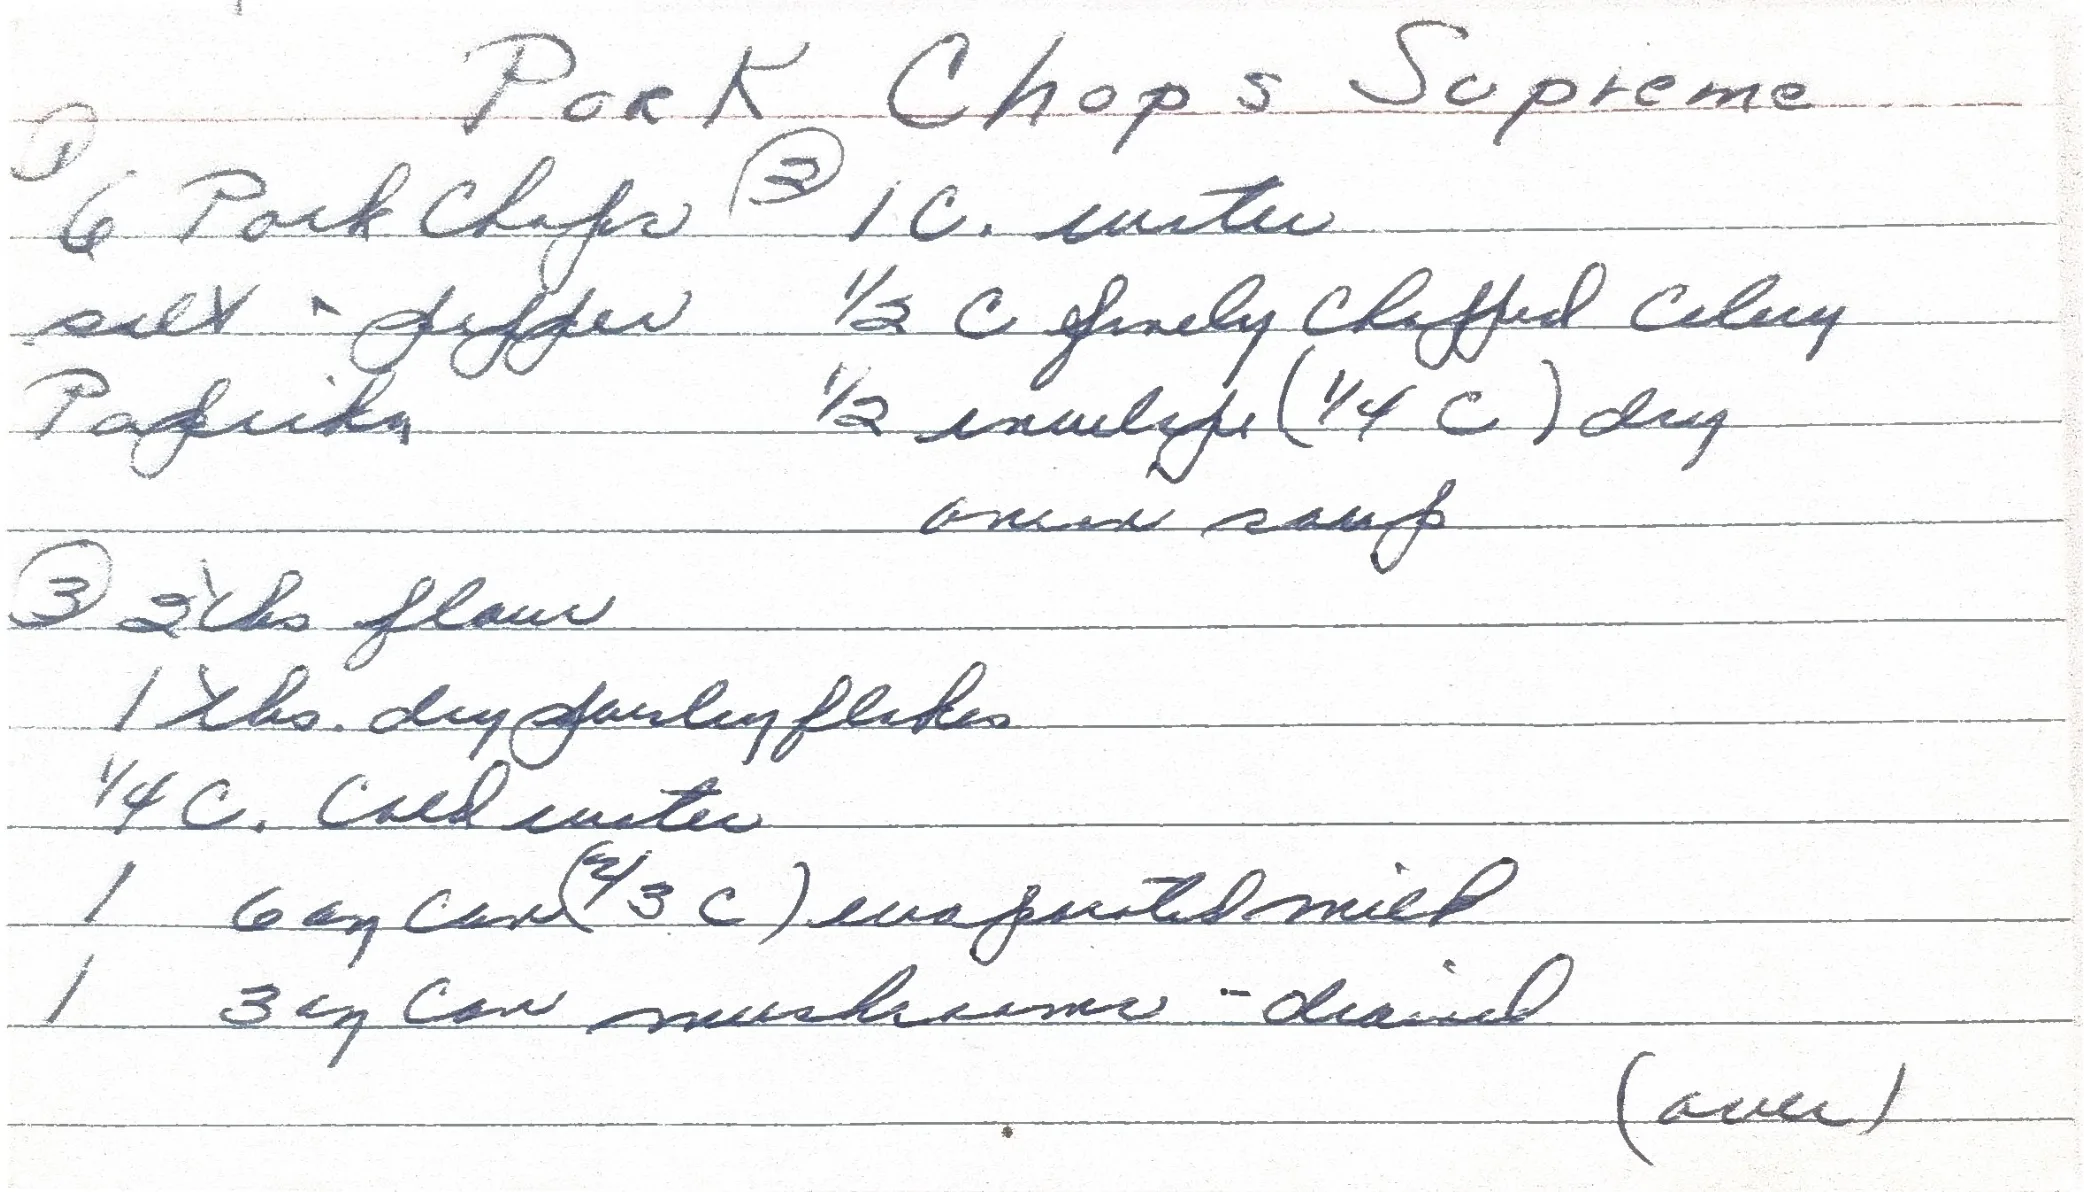 Pork Chops Supreme
① 6 Pork Chops
salt - pepper
Paprika
② 1 C. water
1/2 C finely Chopped Celery
1/2 envelope (1/4 C) dry
onion soup
③ 2 tbs flour
1 tbs. dry parsley flakes
1/4 C. Cold water
1 6 oz Can (2/3 C) evaporated milk
1 3 oz Can mushrooms - drained
(over)